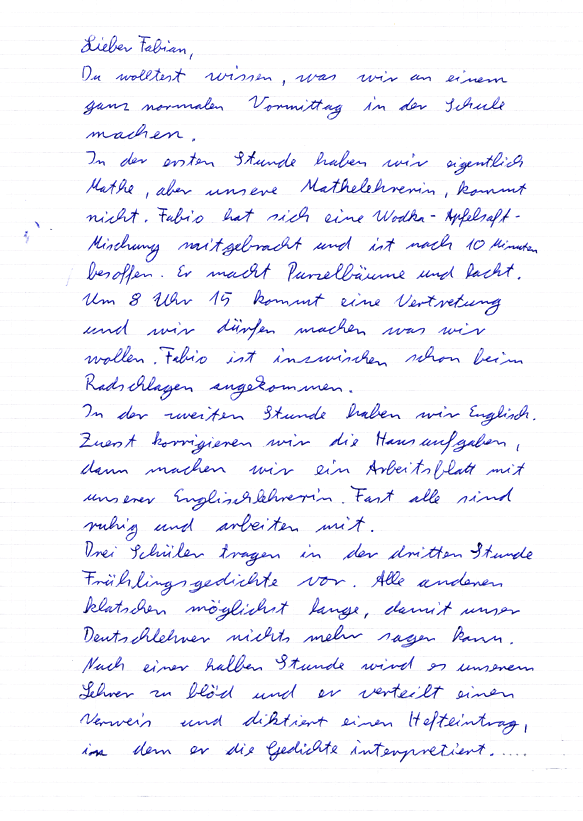 Lieber Fabian,
Du wolltest wissen, was wir an einem
ganz normalen Vormittag in der Schule
machen.
In der ersten Stunde haben wir eigentlich
Mathe, aber unsere Mathelehrerin, kommt
nicht. Fabio hat sich eine Wodka-Apfelsaft-
Mischung mitgebracht und ist nach 10 Minuten
besoffen. Er macht Purzelbäume und lacht.
Um 8 Uhr 15 kommt eine Vertretung
und wir dürfen machen was wir
wollen. Fabio ist inzwischen schon beim
Radschlagen angekommen.
In der zweiten Stunde haben wir Englisch.
Zuerst korrigieren wir die Hausaufgaben,
dann machen wir ein Arbeitsblatt mit
unserer Englischlehrerin. Fast alle sind
ruhig und arbeiten mit.
Drei Schüler tragen in der dritten Stunde
Frühlingsgedichte vor. Alle anderen
klatschen möglichst lange, damit unser
Deutschlehrer nichts mehr sagen kann.
Nach einer halben Stunde wird es unserem
Lehrer zu blöd und er verteilt einen
Verweis und diktiert einen Hefteintrag,
in dem er die Gedichte interpretiert.....